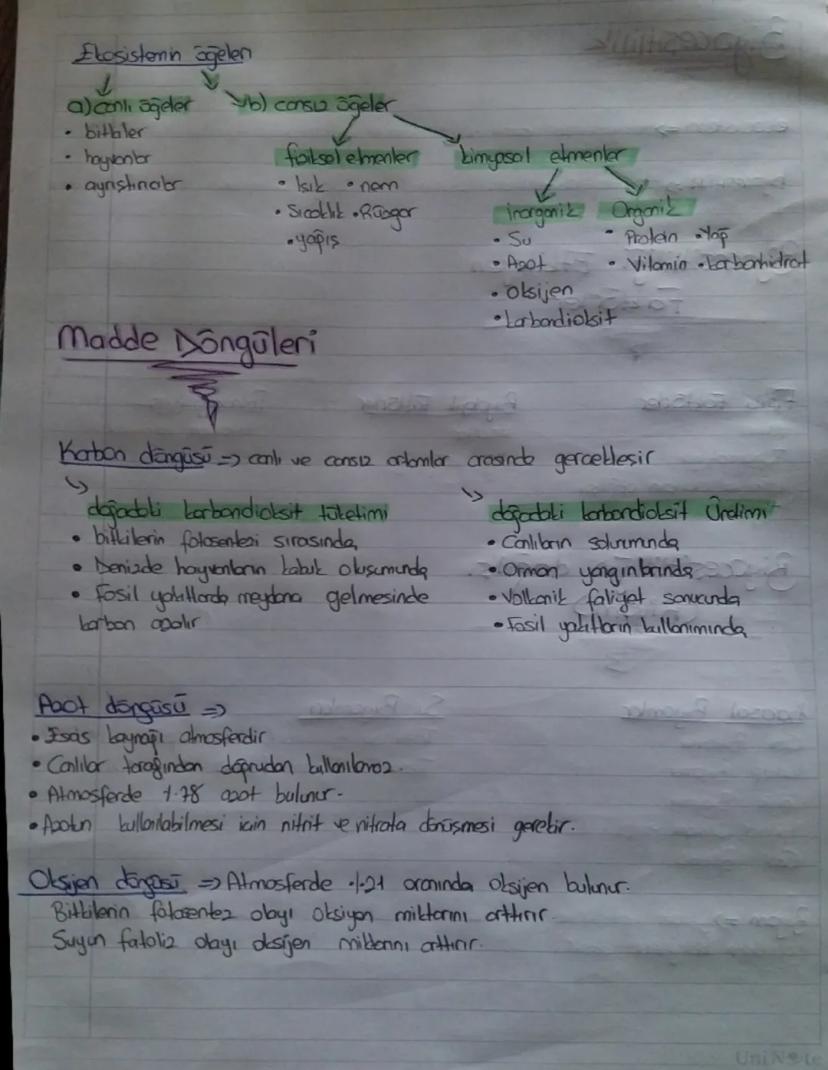 Ekosistemin öğeleri
a) canlı öğeler
b) cansız öğeler
• bitkiler
• hayvanlar
• ayrıştırıcılar
fiziksel etmenler
• Işık • nem
• Sıcaklık • Rüzgar
• yağış
kimyasal etmenler
inorganik
• Su
• Azot
• Oksijen
• karbondioksit
Organik
• Protein • Yağ
• Vitamin • karbonhidrat
Madde Döngüleri
Karbon döngüsü => canlı ve cansız ortamlar arasında gerçekleşir
doğadaki karbondioksit tüketimi
• bitkilerin fotosentezi sırasında,
• Denizde hayvanların kabuk oluşumunda
• Fosil yakıtlarda meydana gelmesinde
karbon azalır
doğadaki karbondioksit Üretimi
• Canlıların solunumunda
• Orman yangınlarında
• Volkanik faliyet sonucunda
• Fosil yakıtların kullanımında
Azot döngüsü =>
• Esas kaynağı atmosferdir
• Canlılar tarağından doğrudan kullanılamaz.
• Atmosferde %78 azot bulunur.
• Azotun kullanılabilmesi için nitrit ve nitrata dönüşmesi gerekir.
Oksijen döngüsü => Atmosferde %21 oranında Oksijen bulunur.
Bitkilerin fotosentez olayı Oksiyen miktarını arttırır.
Suyun fatoliz olayı oksijen miktarını arttırır.
UniNote